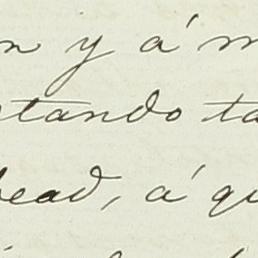 n y á m
tando ta
bead, á qu